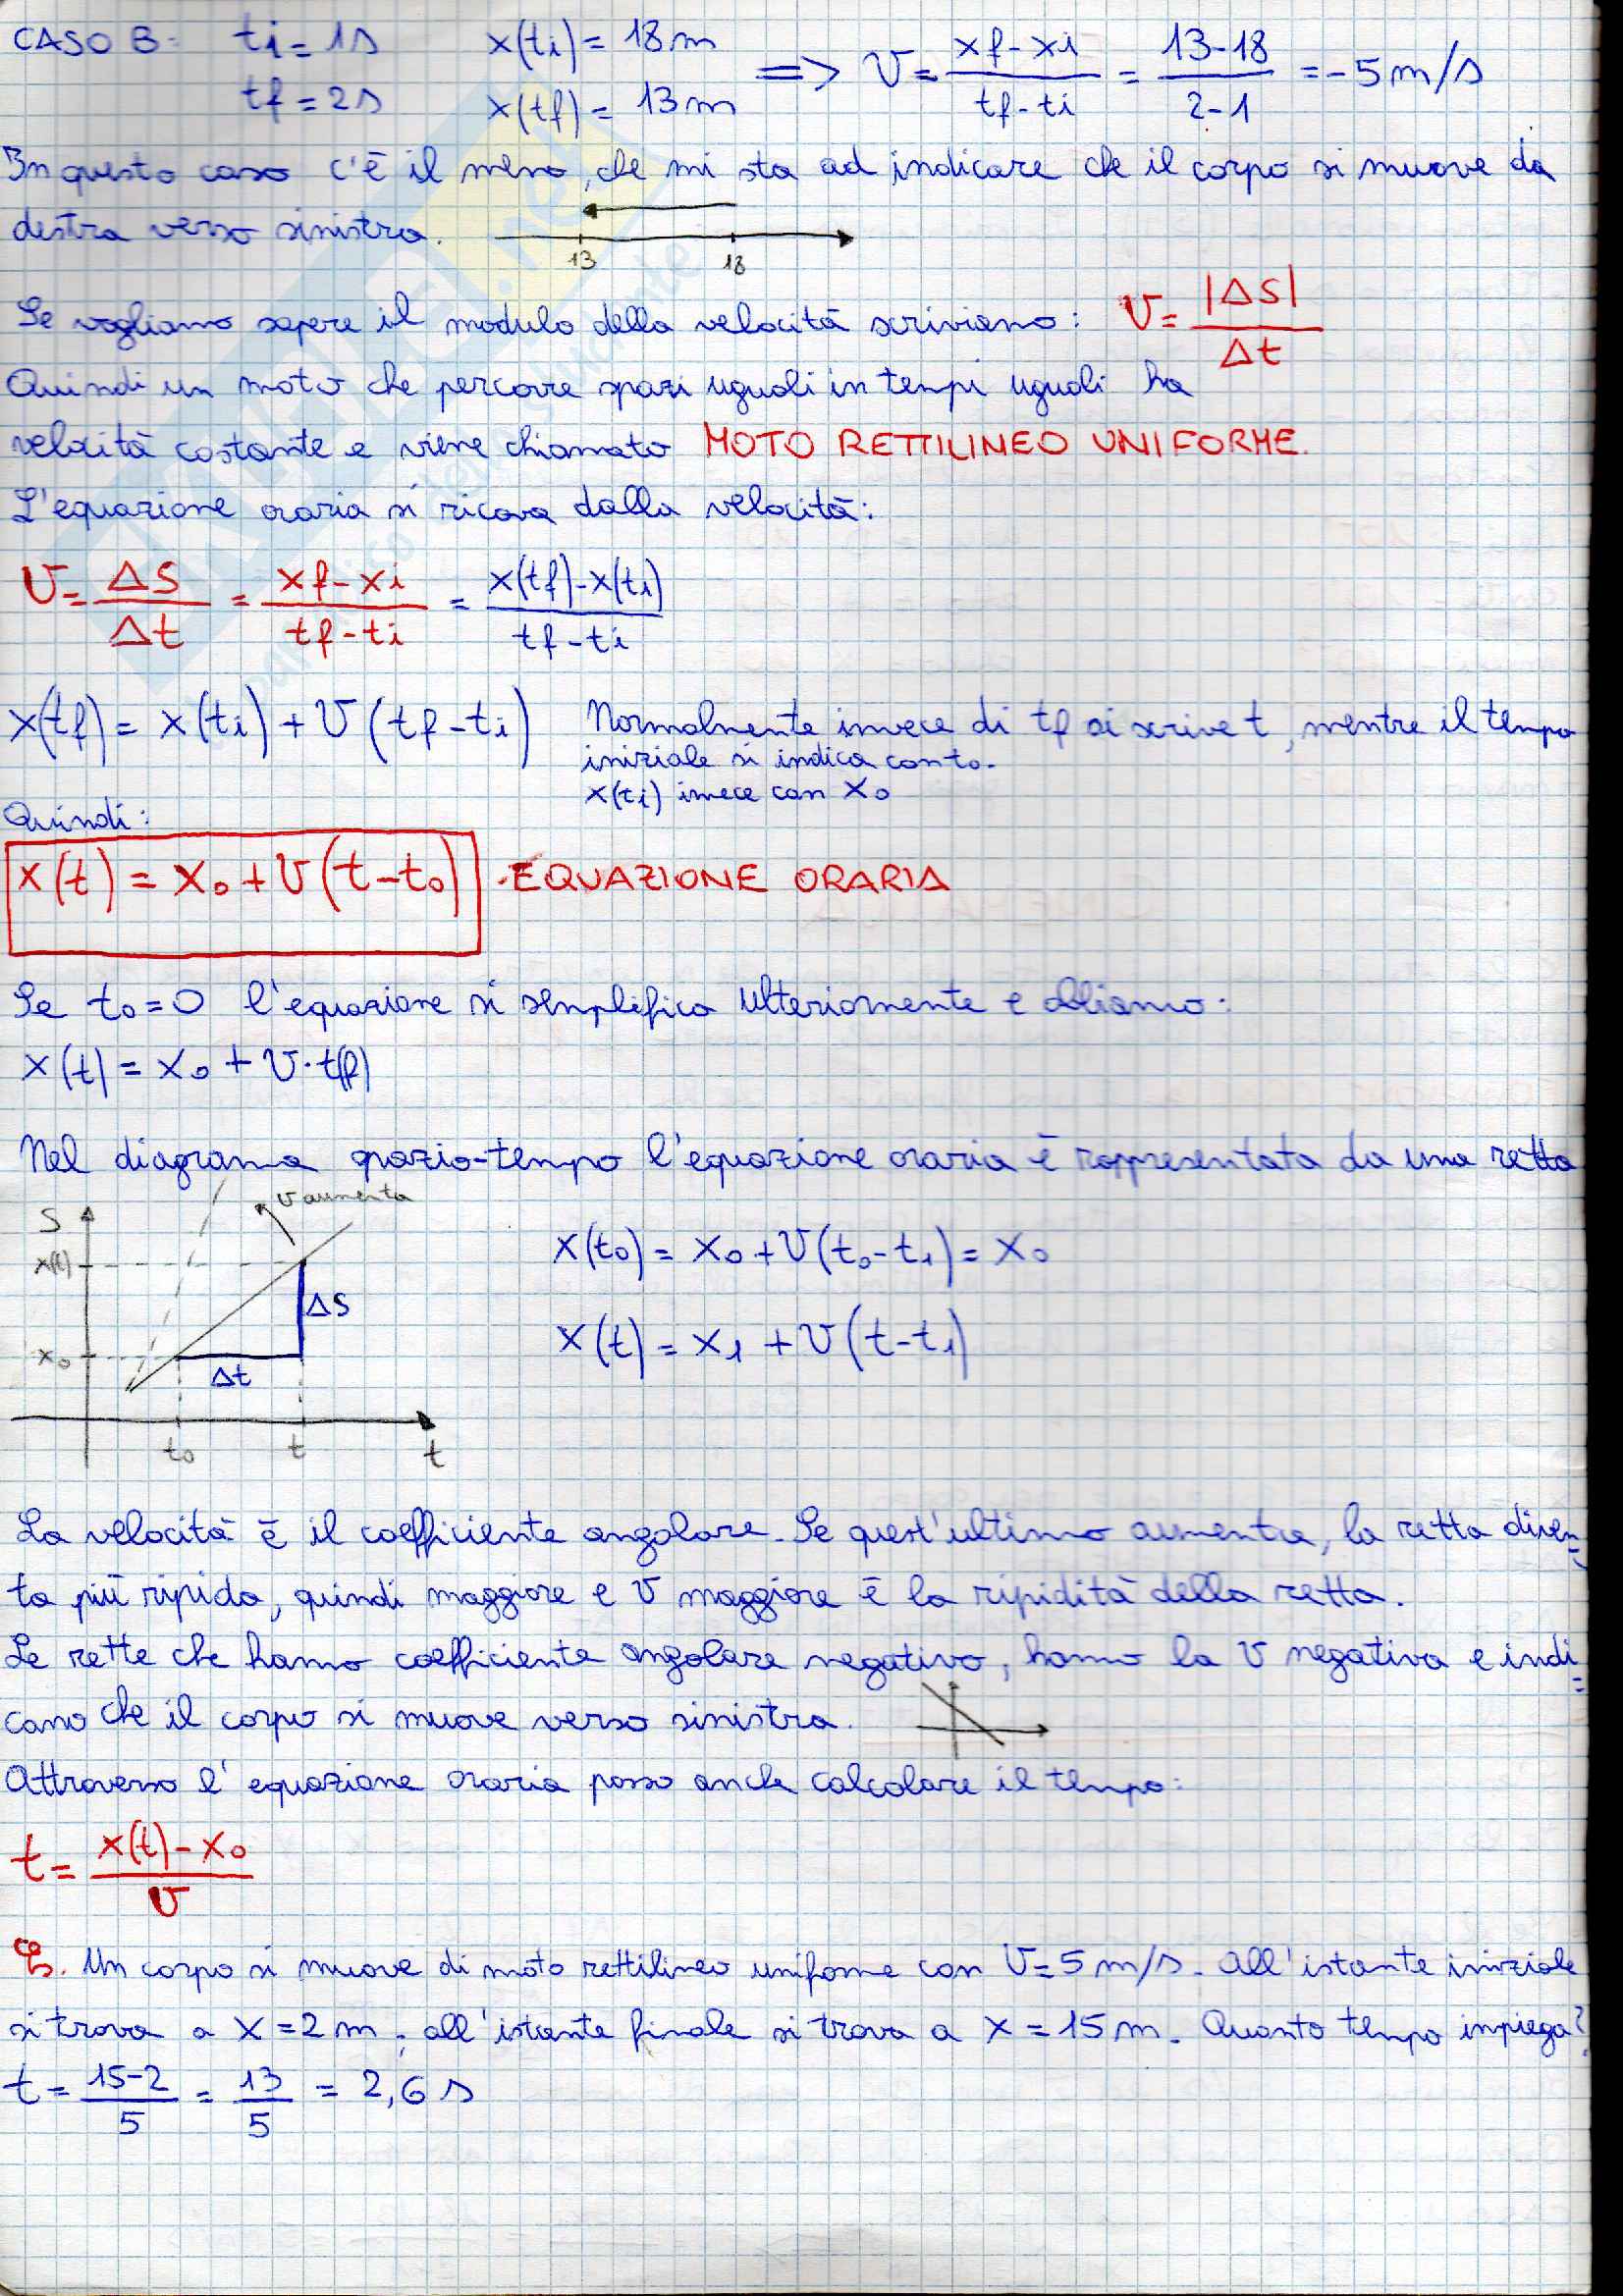 CASO B: ti = 1s x(ti) = 18 m => v = xf-xi / tf-ti = 13-18 / 2-1 = -5 m/s
tf = 2s x(tf) = 13 m
In questo caso c'è il meno, che mi sta ad indicare che il corpo si muove da
destra verso sinistra.
13 18
Se vogliamo sapere il modulo della velocità scriviamo: v = |ΔS| / Δt
Quindi un moto che percorre spazi uguali in tempi uguali ha
velocità costante e viene chiamato MOTO RETTILINEO UNIFORME.
L'equazione oraria si ricava dalla velocità:
v = ΔS / Δt = xf-xi / tf-ti = x(tf)-x(ti) / tf-ti
x(tf) = x(ti) + v(tf-ti) Normalmente invece di tf si scrive t, mentre il tempo
iniziale si indica con to.
x(ti) invece con xo
Quindi:
x(t) = xo + v(t-to) . EQUAZIONE ORARIA
Se to = 0 l'equazione si semplifica ulteriormente e abbiamo:
x(t) = xo + v·t(f)
Nel diagrama spazio-tempo l'equazione oraria è rappresentata da una retta
v aumenta
S
x(t)
ΔS
xo
Δt
to t t
x(to) = xo + v(to-t1) = xo
x(t) = x1 + v(t-t1)
La velocità è il coefficiente angolare. Se quest'ultimo aumenta, la retta diven=
ta più ripida, quindi maggiore e v maggiore è la ripidità della retta.
Le rette che hanno coefficiente angolare negativo, hanno la v negativa e indi=
cano che il corpo si muove verso sinistra.
Attraverso l'equazione oraria posso anche calcolare il tempo:
t = x(t)-xo / v
Es. Un corpo si muove di moto rettilineo uniforme con v = 5 m/s. All'istante iniziale
si trova a x = 2 m, all'istante finale si trova a x = 15 m. Quanto tempo impiega?
t = 15-2 / 5 = 13 / 5 = 2,6 s